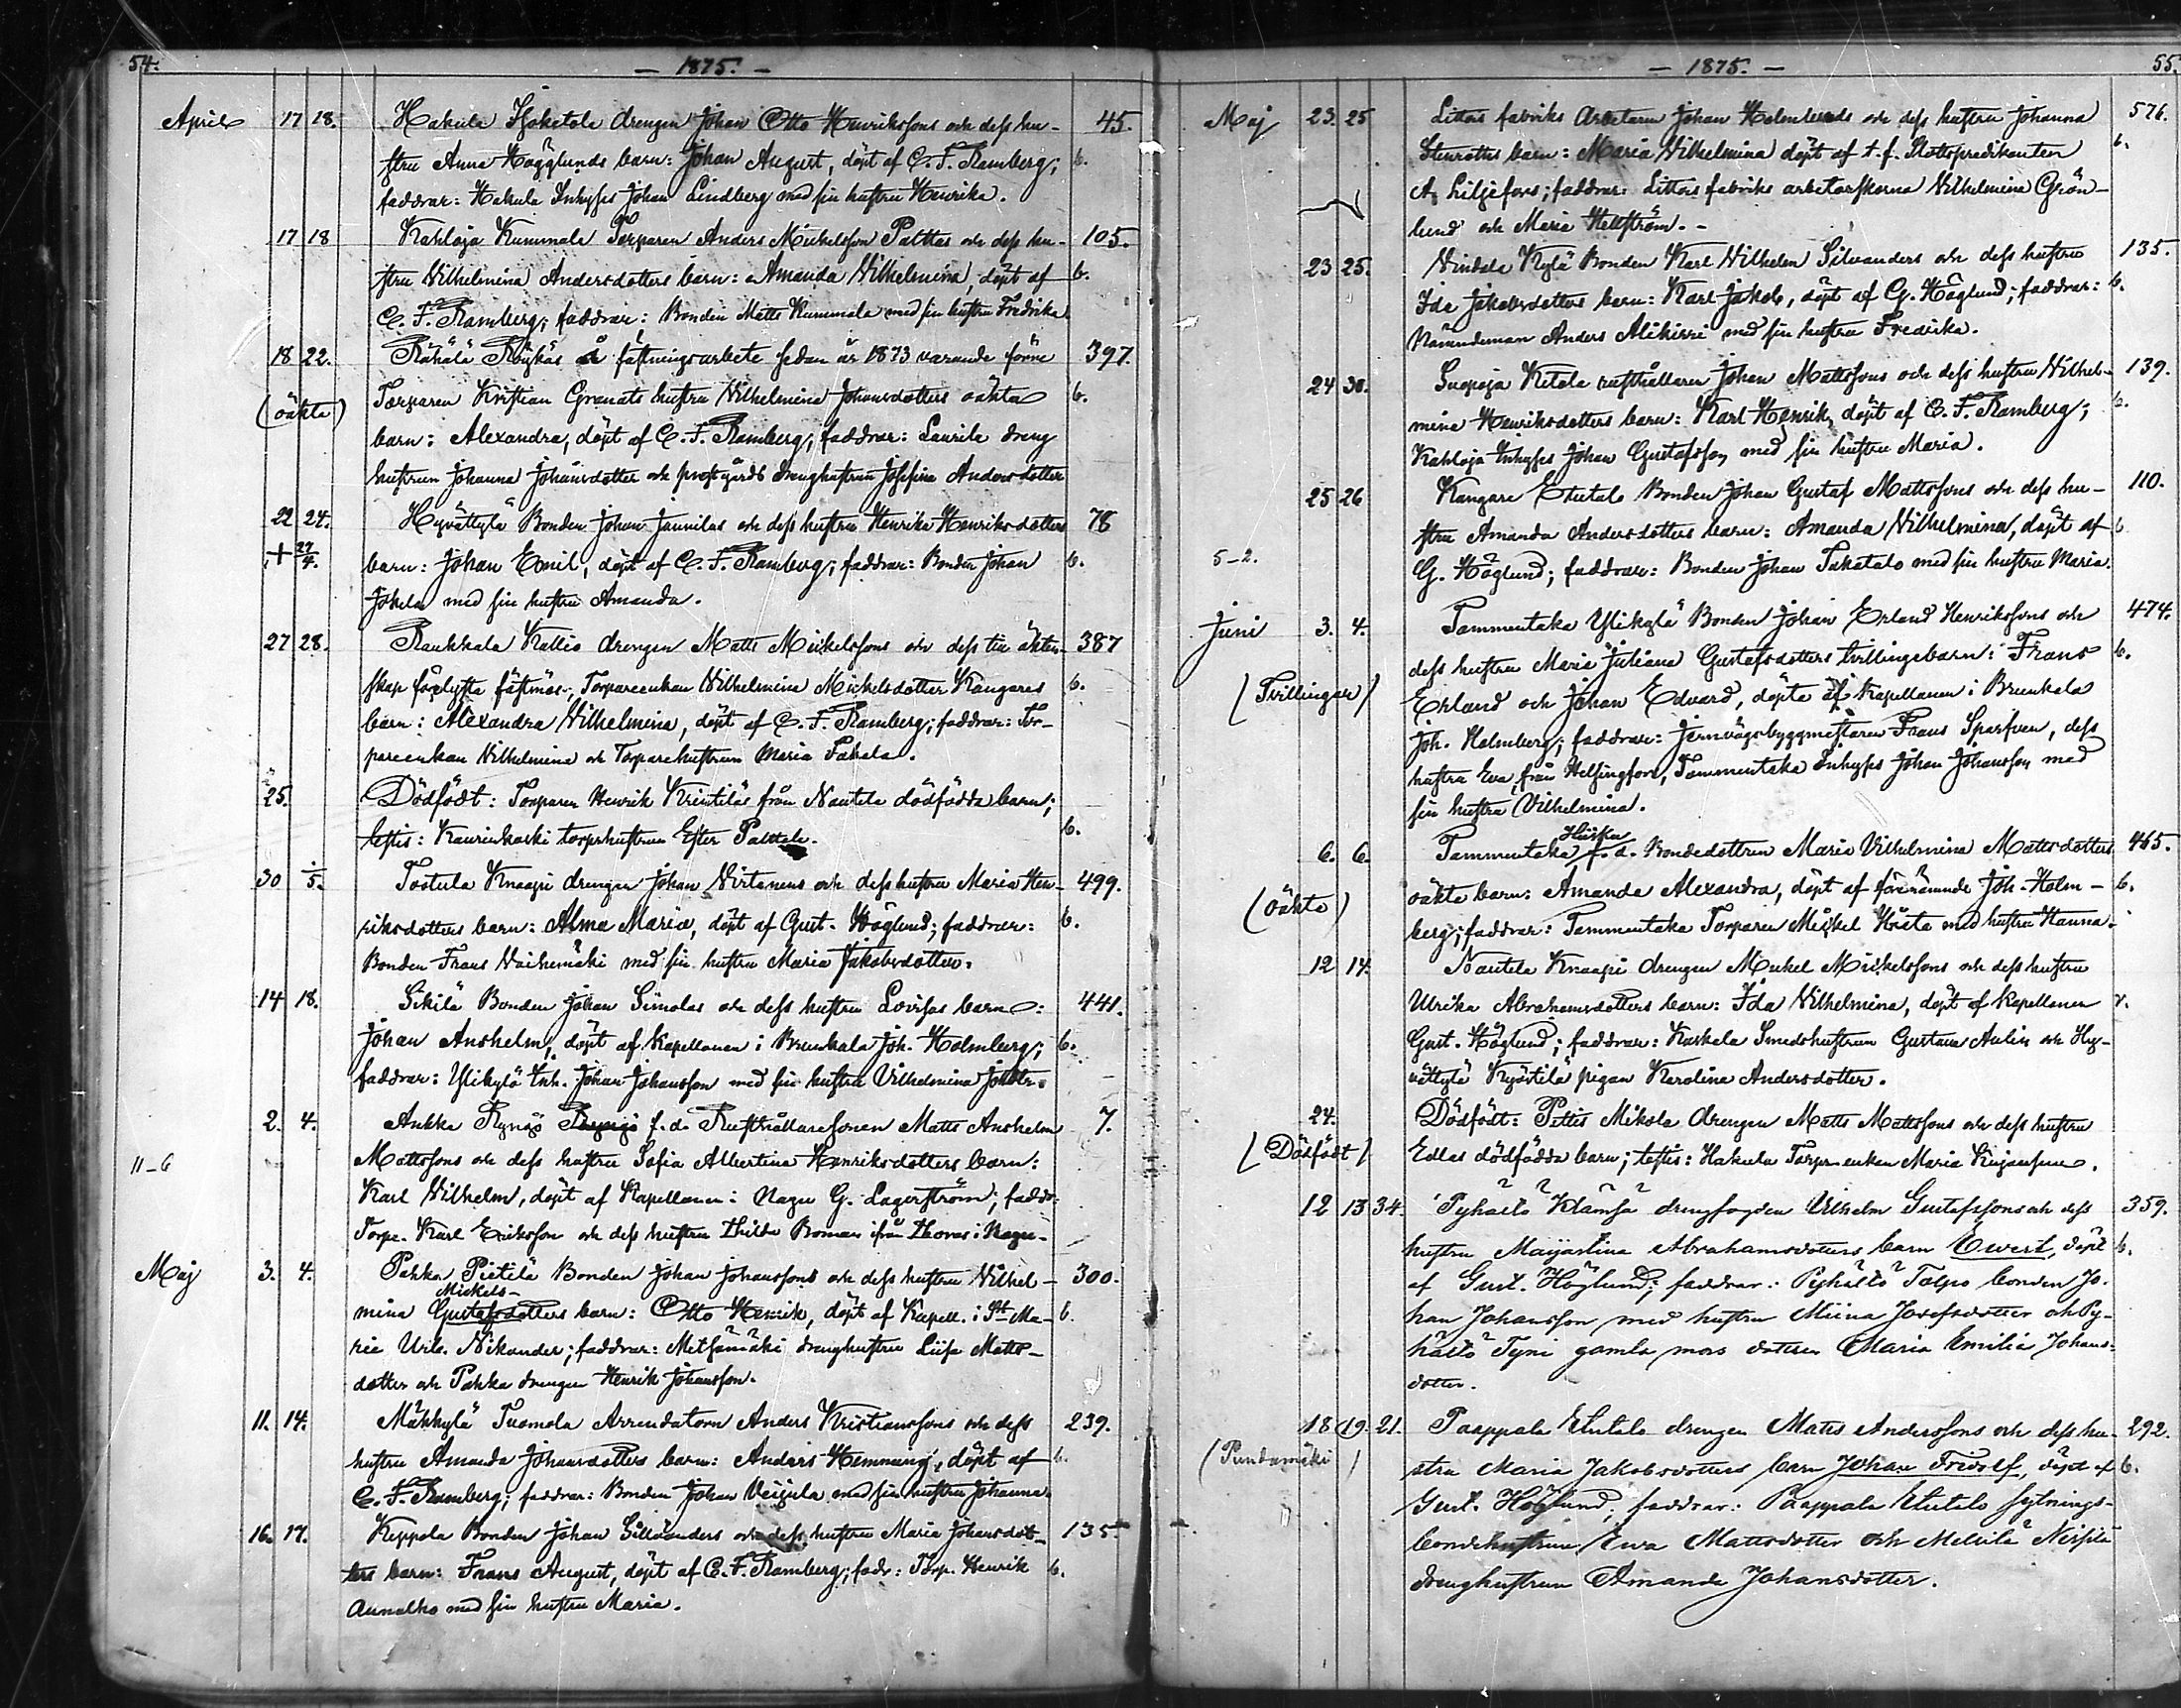 54. — 1875. —
April 17 18. Hakula Isotalo drengen Johan Otto Henrikssons och dess hu- 45.
stru Anna Hägglunds barn: Johan August, döpt af C. F. Ramberg; b.
faddrar: Hakula Inhyses Johan Lindberg med sin hustru Henrika.
17 18 Kahloja Kummala Torparen Anders Mickelsson Palttas och dess hu- 105.
stru Vilhelmina Andersdotters barn: Amanda Vilhelmina, döpt af b.
C. F. Ramberg; faddrar: Bonden Matts Kummala med sin hustru Fredrika
18 22. Rähälä Röykäs å fästningsarbete sedan år 1873 varande förre 397.
(oäkta) Torparen Kristian Granats hustru Vilhelmina Johansdotters oäkta b.
barn: Alexandra, döpt af C. F. Ramberg; faddrar: Laurila dreng
hustrun Johanna Johansdotter och prestgårds drenghustrun Josefina Andersdotter
22 24. Hyvättylä Bonden Johan Jaunilas och dess hustru Henrika Henriksdotters 78
+ 27/4. barn: Johan Emil, döpt af C. F. Ramberg; faddrar: Bonden Johan b.
Jokela med sin hustru Amanda.
27 28. Raukkala Kallio drengen Matts Mickelssons och dess till äkten- 387
skap förlyfta fästmös, Torpareenkan Vilhelmina Mickelsdotter Kangares b.
barn: Alexandra Vilhelmina, döpt af C. F. Ramberg; faddrar: Tor-
pareenkan Vilhelmina och Torparehustrun Maria Takala.
25. Dödfödt: Torparen Henrik Krintiläs från Nautela dödfödda barn;
testis: Kaurinkoski torparhustrun Ester Palttala. b.
30 1/5. Tostula Knaapi drengen Johan Virtanens och dess hustru Maria Hen- 499.
riksdotters barn: Alma Maria, döpt af Gust. Höglund; faddrar: b.
Bonden Frans Vaihemäki med sin hustru Maria Jakobsdotter.
14 18. Sikilä Bonden Johan Simolas och dess hustru Lovisas barn: 441.
Johan Anshelm, döpt af Kapellanen i Brunkala Joh. Holmberg; b.
faddrar: Ylikylä Inh. Johan Johansson med sin hustru Vilhelmina Johdr.
2. 4. Aukka Rynäs f. d. Rusthållaresonen Matts Anshelm 7.
11-6 Mattssons och dess hustru Sofia Albertina Henriksdotters barn:
Karl Vilhelm, döpt af Kapellanen i Nagu G. Lagerström; faddr:
Torp. Karl Eriksson och dess hustru Hilda Boman ifrån i Nagu.
Maj 3. 4. Pahka Pietilä Bonden Johan Johanssons och dess hustru Vilhel- 300.
Mickels-
mina Gustafsdotters barn: Otto Henrik, döpt af Kapell. i St Ma- b.
rie Urb. Nikander; faddrar: Metsämäki drenghustru Liisa Matts-
dotter och Pahka drengen Henrik Johansson.
11. 14. Mähkylä Tuomola Arrendatorn Anders Kristianssons och dess 239.
hustru Amanda Johansdotters barn: Anders Hemming, döpt af b.
C. F. Ramberg; faddrar: Bonden Johan Veijula med sin hustru Johanna.
16. 17. Keppola Bonden Johan Silvanders och dess hustru Maria Johansdot- 135
ters barn: Frans August, döpt af C. F. Ramberg; fadr: Torp. Henrik b.
Aunalho med sin hustru Maria.
— 1875. — 55.
Maj 23. 25 Littois fabriks Arbetaren Johan Holmlunds och dess hustru Johanna 576.
Stenroths barn: Maria Vilhelmina döpt af t. f. Slottspredikanten b.
A. Liljefors; faddrar: Littois fabriks arbeterskorna Vilhelmina Grön-
lund och Maria Hellström.-
23 25. Vindala Kylä Bonden Karl Vilhelm Silvanders och dess hustru 135.
Ida Jakobsdotters barn: Karl Jakob, döpt af G. Höglund; faddrar: b.
Nämndeman Anders Alikirri med sin hustru Fredrika.
24 30. Suopoja Ketola rusthållaren Johan Mattssons och dess hustru Vilhel- 139.
mina Henriksdotters barn: Karl Henrik, döpt af C. F. Ramberg; b.
Kahloja Inhyses Johan Gustafsson med sin hustru Maria.
25 26 Kangare Etutalo Bonden Johan Gustaf Mattssons och dess hu- 110.
stru Amanda Andersdotters barn: Amanda Vilhelmina, döpt af b
5-2. G. Höglund; faddrar: Bonden Johan Takatalo med sin hustru Maria.
Juni 3. 4. Tammentaka Ylikylä Bonden Johan Erland Henrikssons och 474.
dess hustru Maria Juliana Gustafsdotters tvillingebarn: Frans b.
(Tvillingar) Erland och Johan Edvard, döpta af Kapellanen i Brunkala
Joh. Holmberg; faddrar: Jernvägsbyggmästaren Frans Sparfven, dess
hustru Eva, från Helsingfors, Tammentaka Inhyses Johan Johansson med
sin hustru Vilhelmina.
Huiska
6. 6. Tammentaka f. d. Bondedottren Maria Vilhelmina Mattsdotters 465.
(oäkta) oäkta barn: Amanda Alexandra, döpt af förenämnde Joh. Holm- b.
berg; faddrar: Tammentaka Torparen Mickel Hösta med hustru Hanna.
12 14. Nautela Knaapi drengen Mickel Mickelssons och dess hustru
Ulrika Abrahamsdotters barn: Ida Vilhelmina, döpt af Kapellanen v.
Gust. Höglund; faddrar: Koskela Smedshustrun Gustava Aulin och Hy-
vättylä Kyöstilä pigan Karolina Andersdotter.
24. Dödfödt: Pettis Mikola drengen Matts Mattssons och dess hustru
(Dödfödt) Eddas dödfödda barn; testis: Hakula Torparenkan Maria.
12 13 34. Pyhältö Klämsä drengfogden Vilhelm Gustafssons och dess 359.
hustru Maijastina Abrahamsdotters barn Ewert, döpt b.
af Gust. Höglund; faddrar: Pyhältö Tolpo bonden Jo-
han Johansson med hustru Miina Josefsdotter och Py-
hältö Tyni gamla mors dottern Maria Emilia Johans-
dotter.
18 (19. 21. Paappala Etutalo drengen Matts Anderssons och dess hu- 292.
(Pundumäki) stru Maria Jakobsdotters barn Johan Fridolf, döpt af b.
Gust. Höglund, faddrar: Paappala Etutalo sytnings-
bondehustrun Ewa Mattsdotter och Melkilä
drenghustrun Amanda Johansdotter.